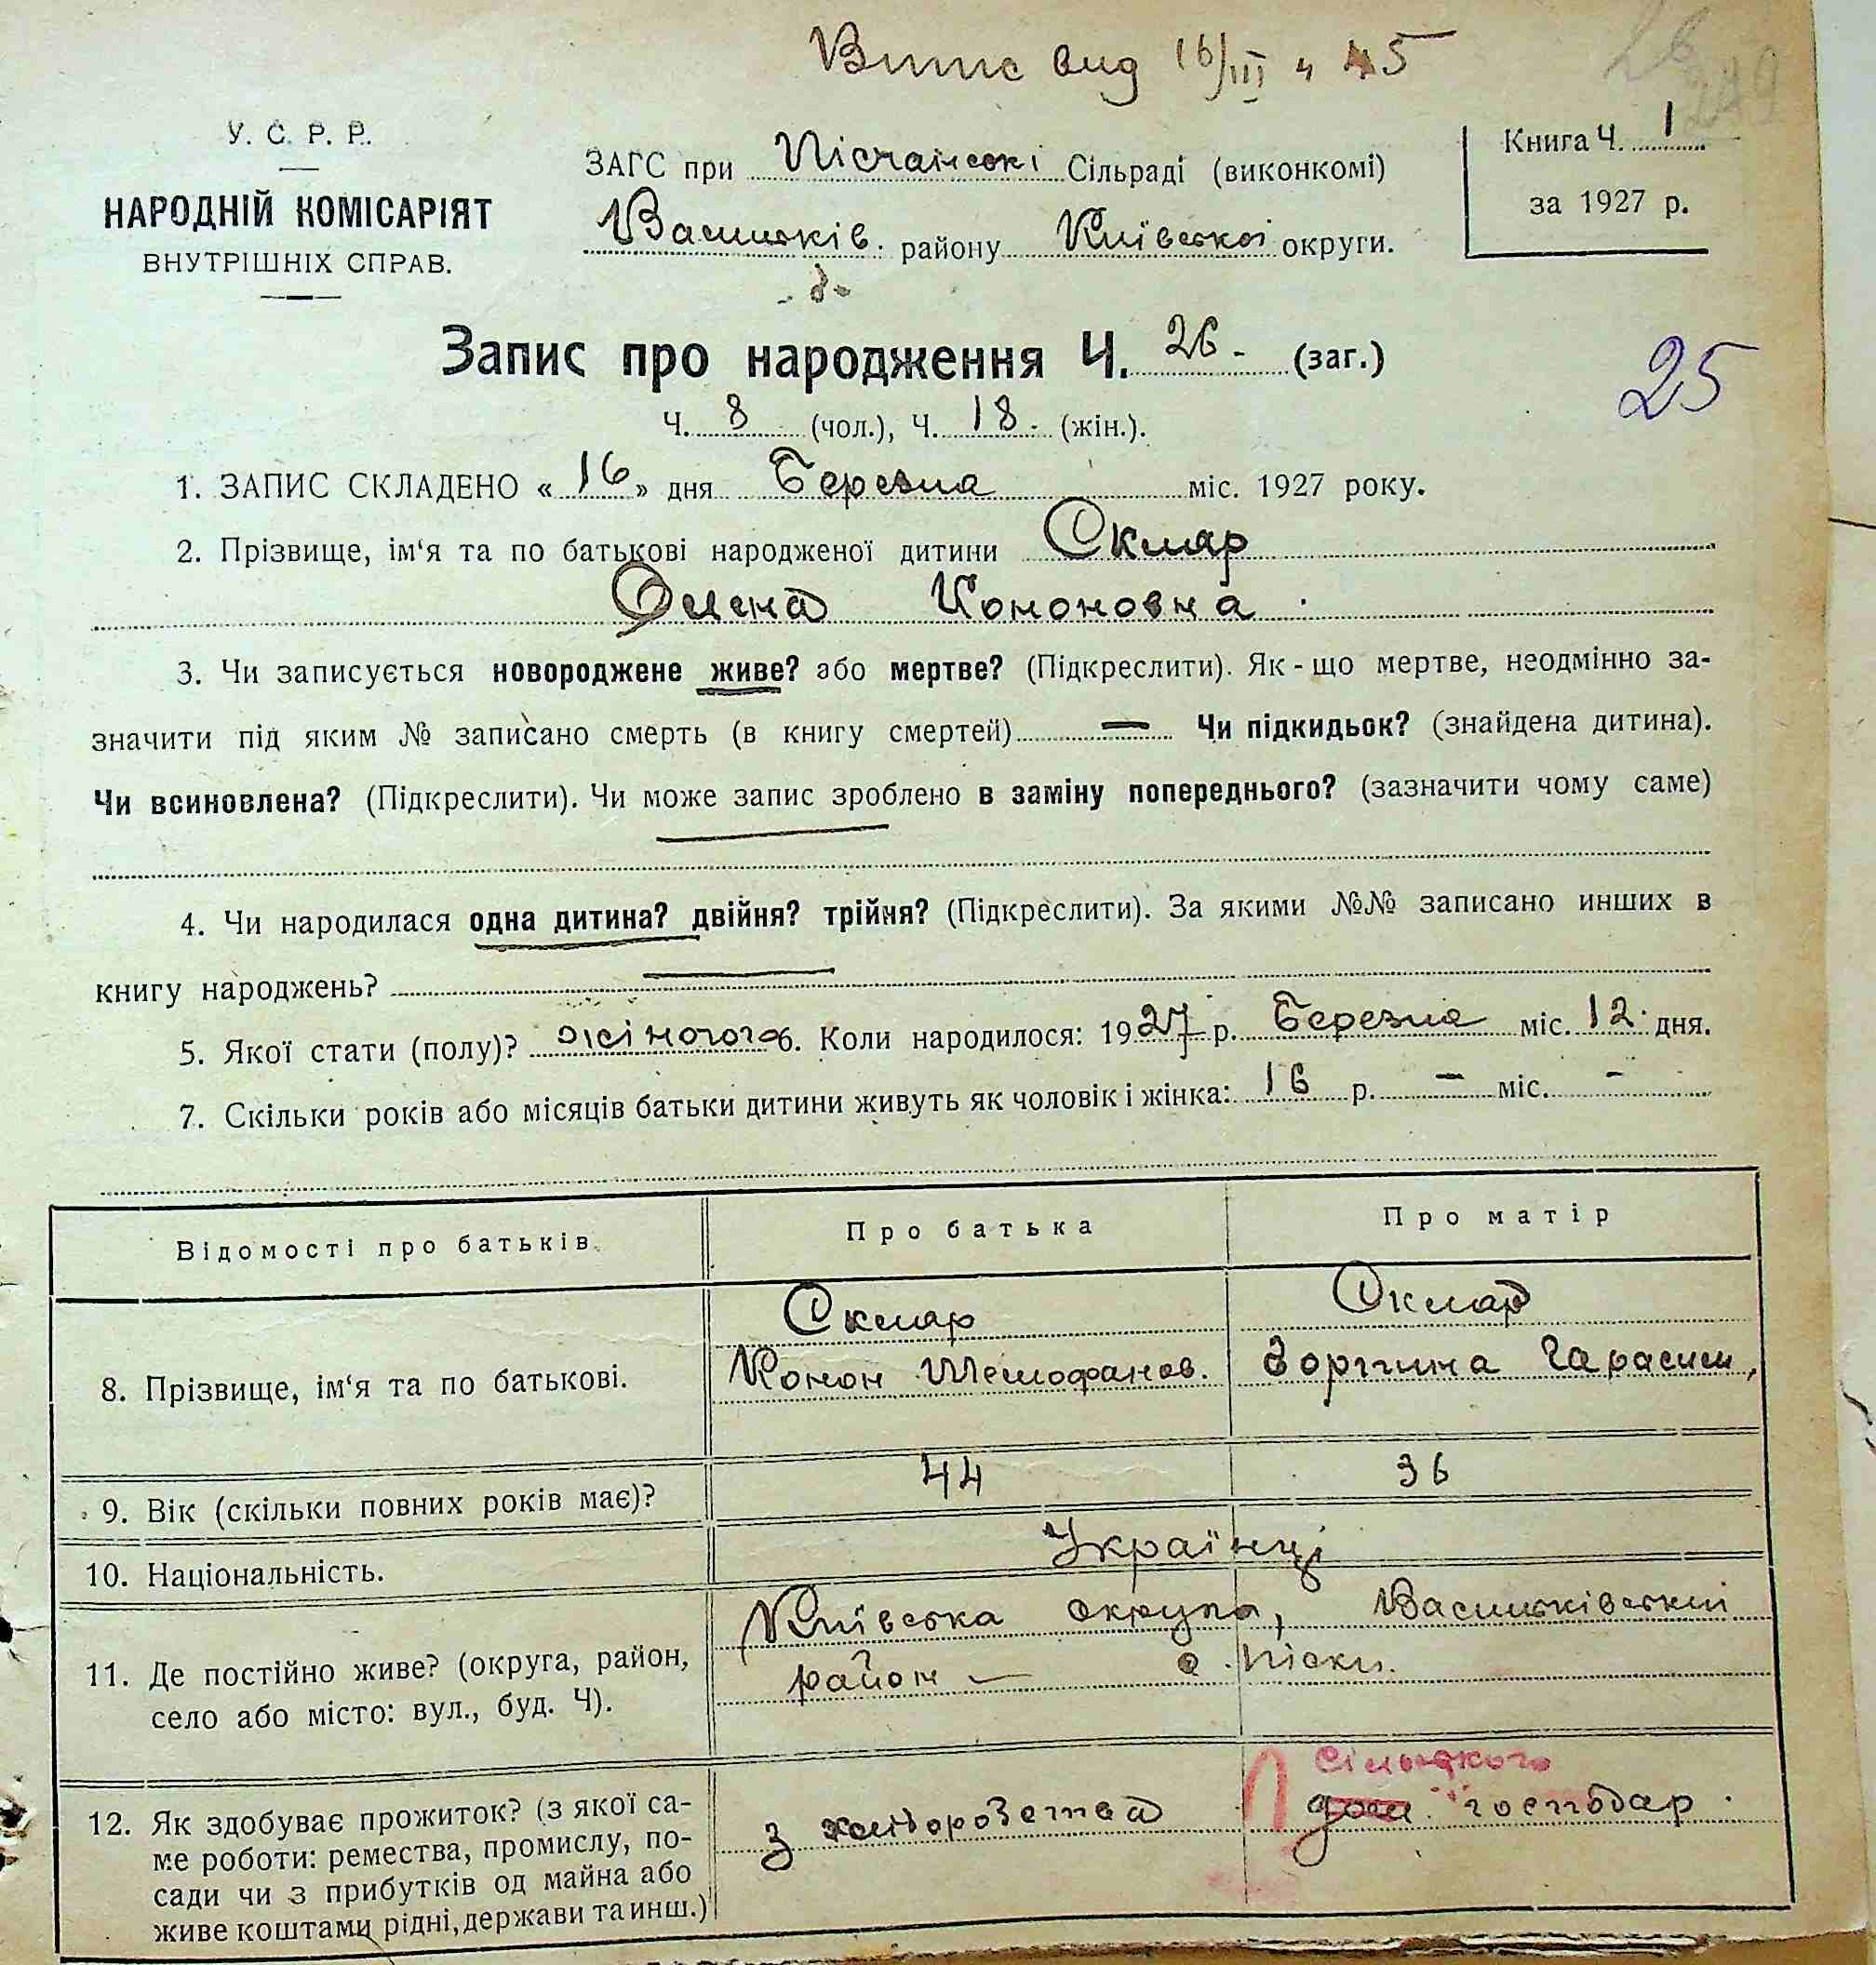 Витис вид 16/III 45
У. С. Р. Р.
НАРОДНІЙ КОМІСАРІЯТ
ВНУТРІШНІХ СПРАВ.
ЗАГС при Пісчанські Сільраді (виконкомі)
Васильків. району Київської округи.
Книга Ч. 1
за 1927 р.
Запис про народження Ч. 26 - (заг.)
25
Ч. 8 (чол.), Ч. 18 (жін.).
1. ЗАПИС СКЛАДЕНО «16» дня Березня міс. 1927 року.
2. Прізвище, ім‘я та по батькові народженої дитини Скляр
Олена Кононовна
3. Чи записується новороджене живе? або мертве? (Підкреслити). Як-що мертве, неодмінно за-
значити під яким № записано смерть (в книгу смертей) — Чи підкидьок? (знайдена дитина).
Чи всиновлена? (Підкреслити). Чи може запис зроблено в заміну попереднього? (зазначити чому саме)
4. Чи народилася одна дитина? двійня? трійня? (Підкреслити). За якими №№ записано инших в
книгу народжень?
5. Якої стати (полу)? жіночого 6. Коли народилося: 1927 р. Березня міс. 12 дня.
7. Скільки років або місяців батьки дитини живуть як чоловік і жінка: 16 р. — міс. -
Відомості про батьків. Про батька Про матір
Скляр Скляр
8. Прізвище, ім‘я та по батькові. Конон Гарасим.
9. Вік (скільки повних років має)? 44 36
10. Національність. Українці
11. Де постійно живе? (округа, район, Київська округа, Васильківський
село або місто: вул., буд. Ч). район — с. Піски.
12. Як здобуває прожиток? (з якої са- з хліборобства Сільського
ме роботи: ремества, промислу, по- господар.
сади чи з прибутків од майна або
живе коштами рідні, держави та инш.)